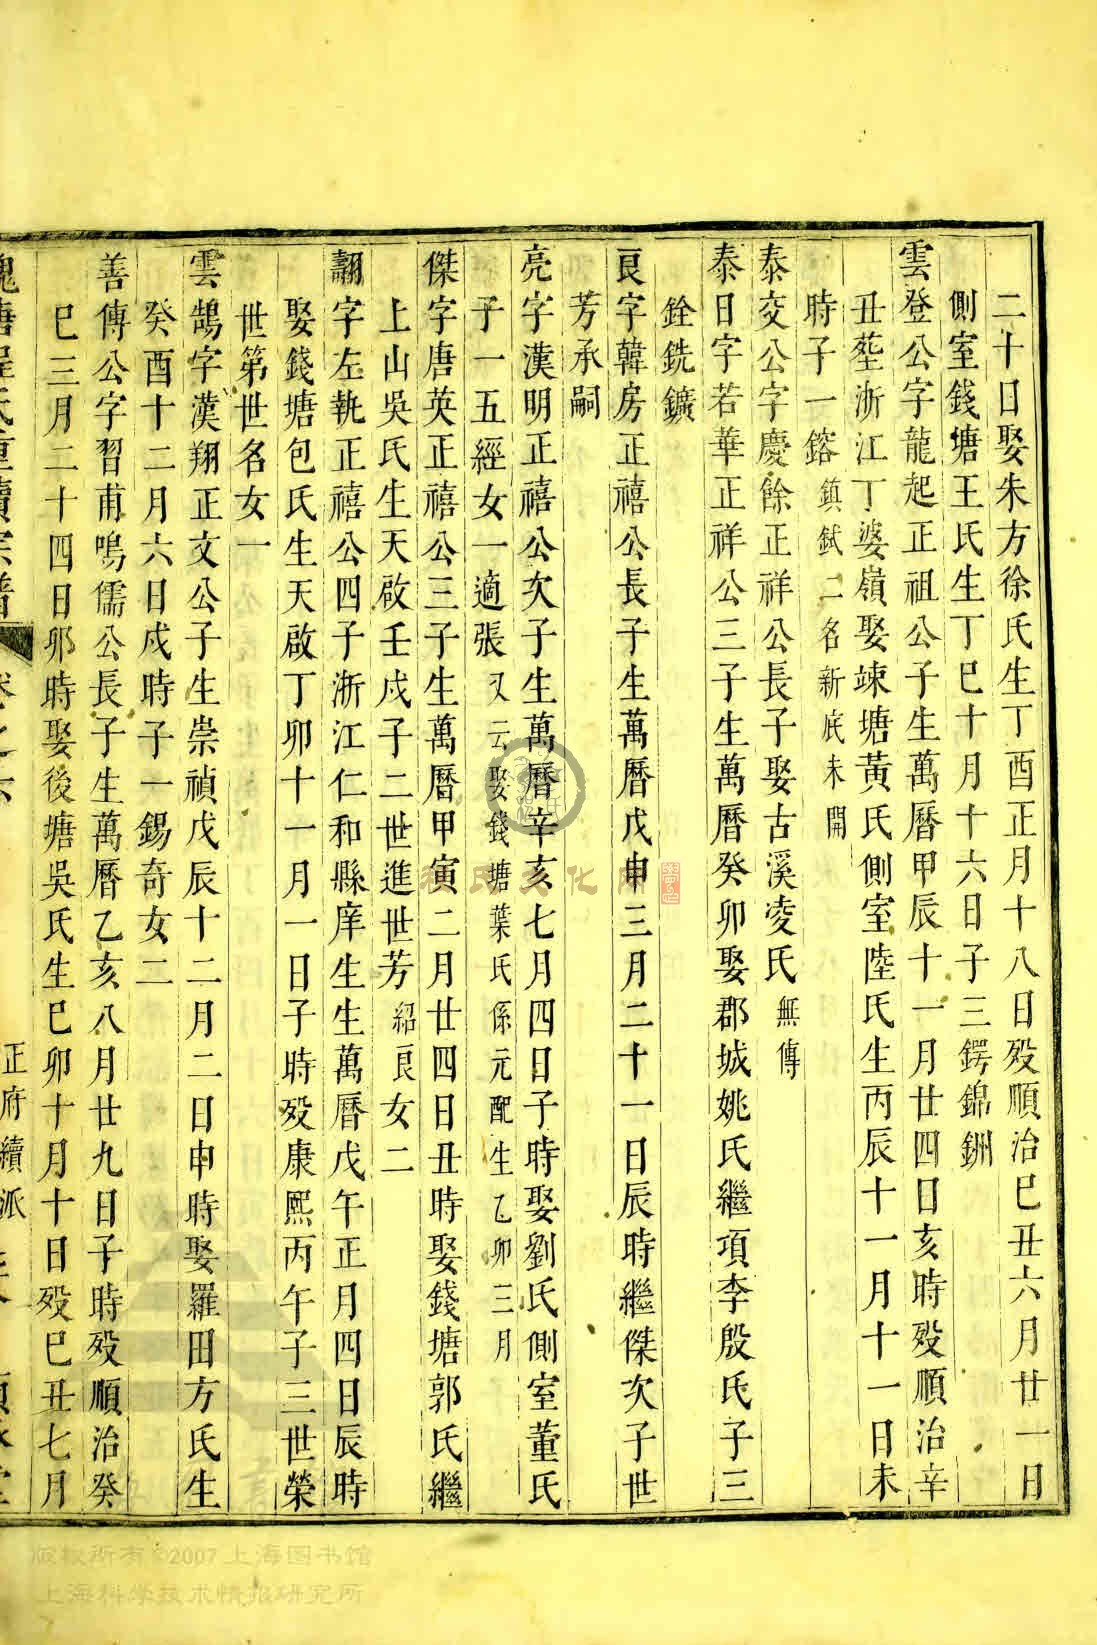 二十日娶朱方徐氏生丁酉正月十八日歿順治己丑六月廿一日
側室錢塘王氏生丁巳十月十六日子三鍔錦鉶
雲登公字龍起正祖公子生萬曆甲辰十一月廿四日亥時歿順治辛
丑塟浙江丁婆嶺娶竦塘黃氏側室陸氏生丙辰十一月十一日未
時子一鎔鎮鉽二名新底未開
泰交公字慶餘正祥公長子娶古溪凌氏無傳
泰日字若華正祥公三子生萬曆癸卯娶郡城姚氏繼項李殷氏子三
銓銑鑛
良字韓房正禧公長子生萬曆戊申三月二十一日辰時繼傑次子世
芳承嗣
亮字漢明正禧公次子生萬曆辛亥七月四日子時娶劉氏側室董氏
子一五經女一適張又云娶錢塘葉氏係元配生乙卯三月
傑字唐英正禧公三子生萬曆甲寅二月廿四日丑時娶錢塘郭氏繼
上山吳氏生天啟壬戌子二世進世芳紹良女二
翿字左執正禧公四子浙江仁和縣庠生生萬曆戊午正月四日辰時
娶錢塘包氏生天啟丁卯十一月一日子時歿康熙丙午子三世榮
世第世名女一
雲鵠字漢翔正文公子生崇禎戊辰十二月二日申時娶羅田方氏生
癸酉十二月六日戌時子一錫奇女二
善傳公字習甫鳴儒公長子生萬曆乙亥八月廿九日子時歿順治癸
巳三月二十四日卯時娶後塘吳氏生己卯十月十日歿己丑七月
槐塘程氏重續宗譜 卷之六 正府續派